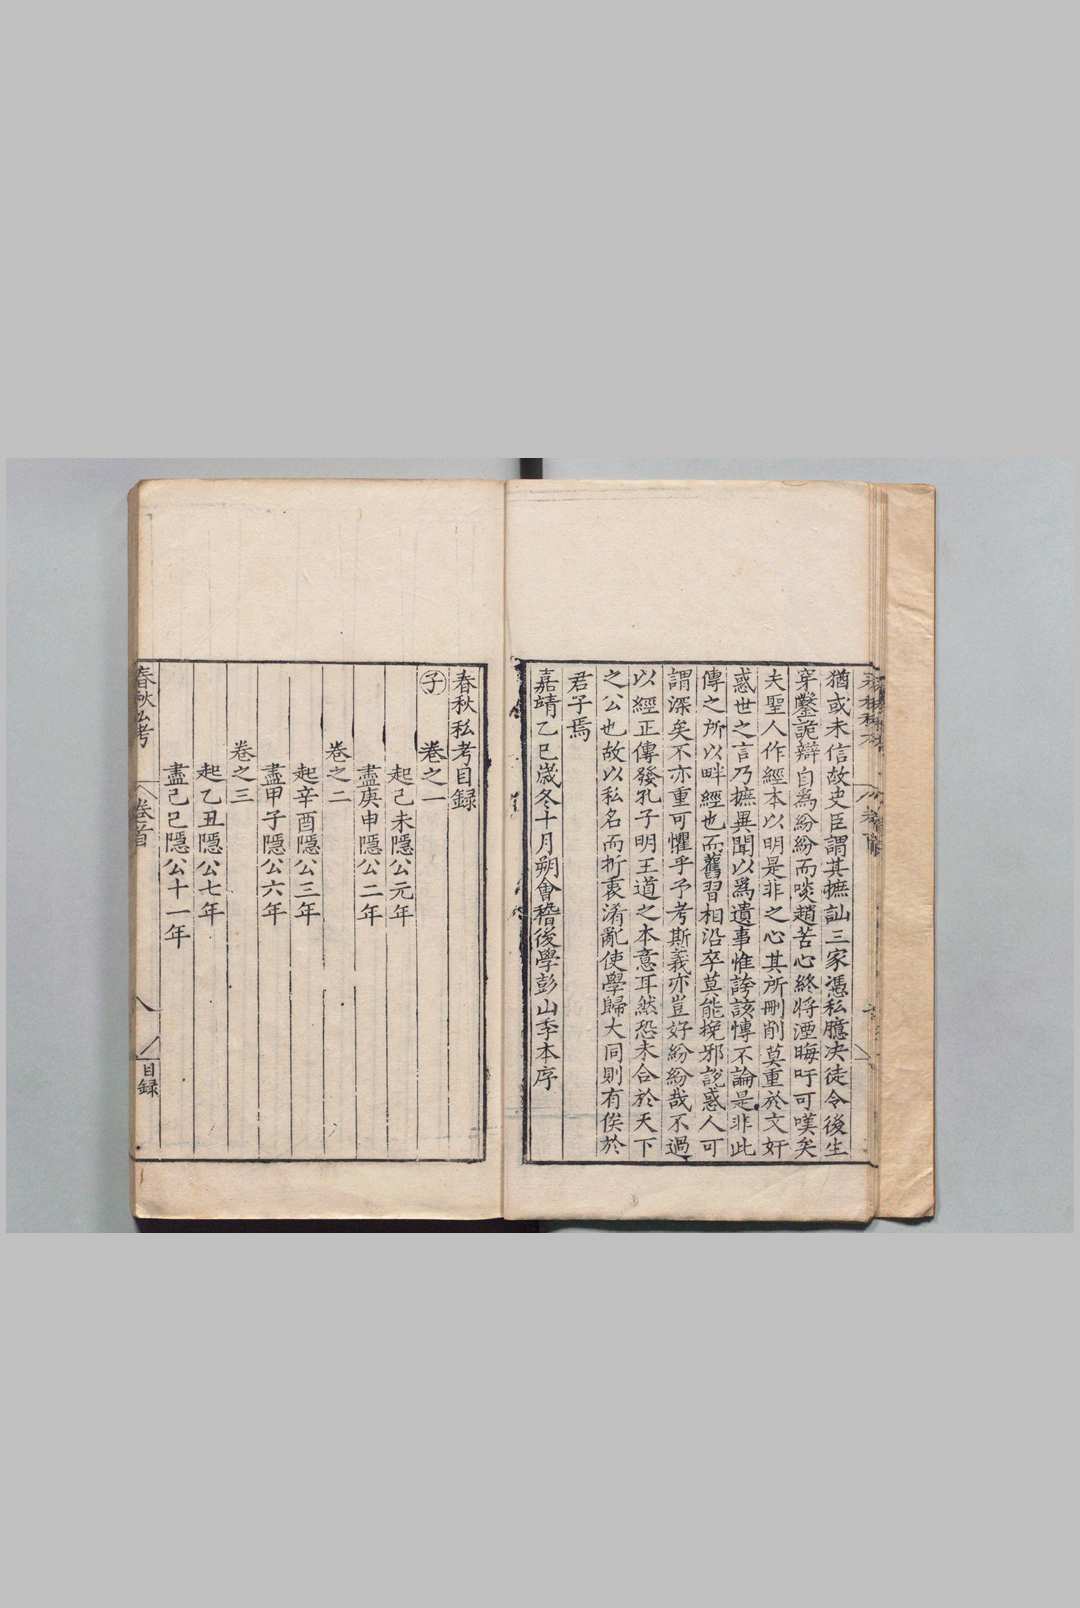 猶或未信故史臣謂其摭訕三家憑私臆决徒令後生
穿鑿詭辯自為紛紛而啖趙苦心終將湮晦吁可嘆矣
夫聖人作經本以明是非之心其所刪削莫重於文奸
惑世之言乃摭異聞以爲遺事惟誇該慱不論是非此
傳之所以畔經也而舊習相沿卒莫能挽邪說惑人可
謂深矣不亦重可懼乎予考斯義亦豈好紛紛哉不過
以經正傳發孔子明王道之本意耳然恐未合於天下
之公也故以私名而折衷淆亂使學歸大同則有俟於
君子焉
嘉靖乙巳歲冬十月朔會稽後學彭山季本序
春秋私考目録
子 卷之一
起己未隱公元年
盡庚申隱公二年
卷之二
起辛酉隱公三年
盡甲子隱公六年
卷之三
起乙丑隱公七年
盡己巳隱公十一年
春秋私考 卷首 目録